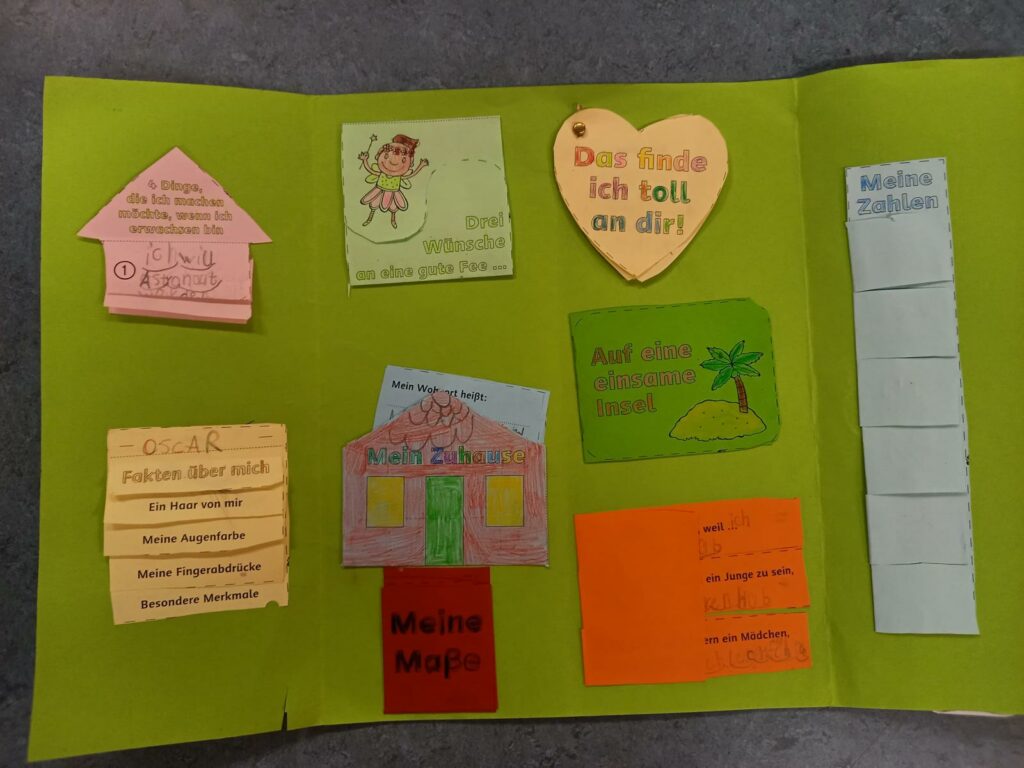 4 Dinge,
die ich machen
möchte, wenn ich
erwachsen bin
1
ich will
Astronaut
Drei
Wünsche
an eine gute Fee ...
Das finde
ich toll
an dir!
Meine
Zahlen
Auf eine
einsame
Insel
Mein Wohnort heißt:
Mein Zuhause
OSCAR
Fakten über mich
Ein Haar von mir
Meine Augenfarbe
Meine Fingerabdrücke
Besondere Merkmale
Meine
Maße
, weil ... ich
ein Junge zu sein,
ern ein Mädchen,